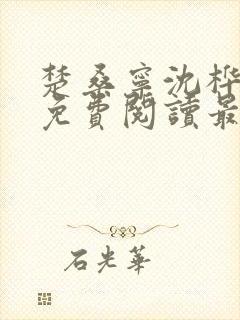 楚桑寧沈桦
免費閱讀最
石光華